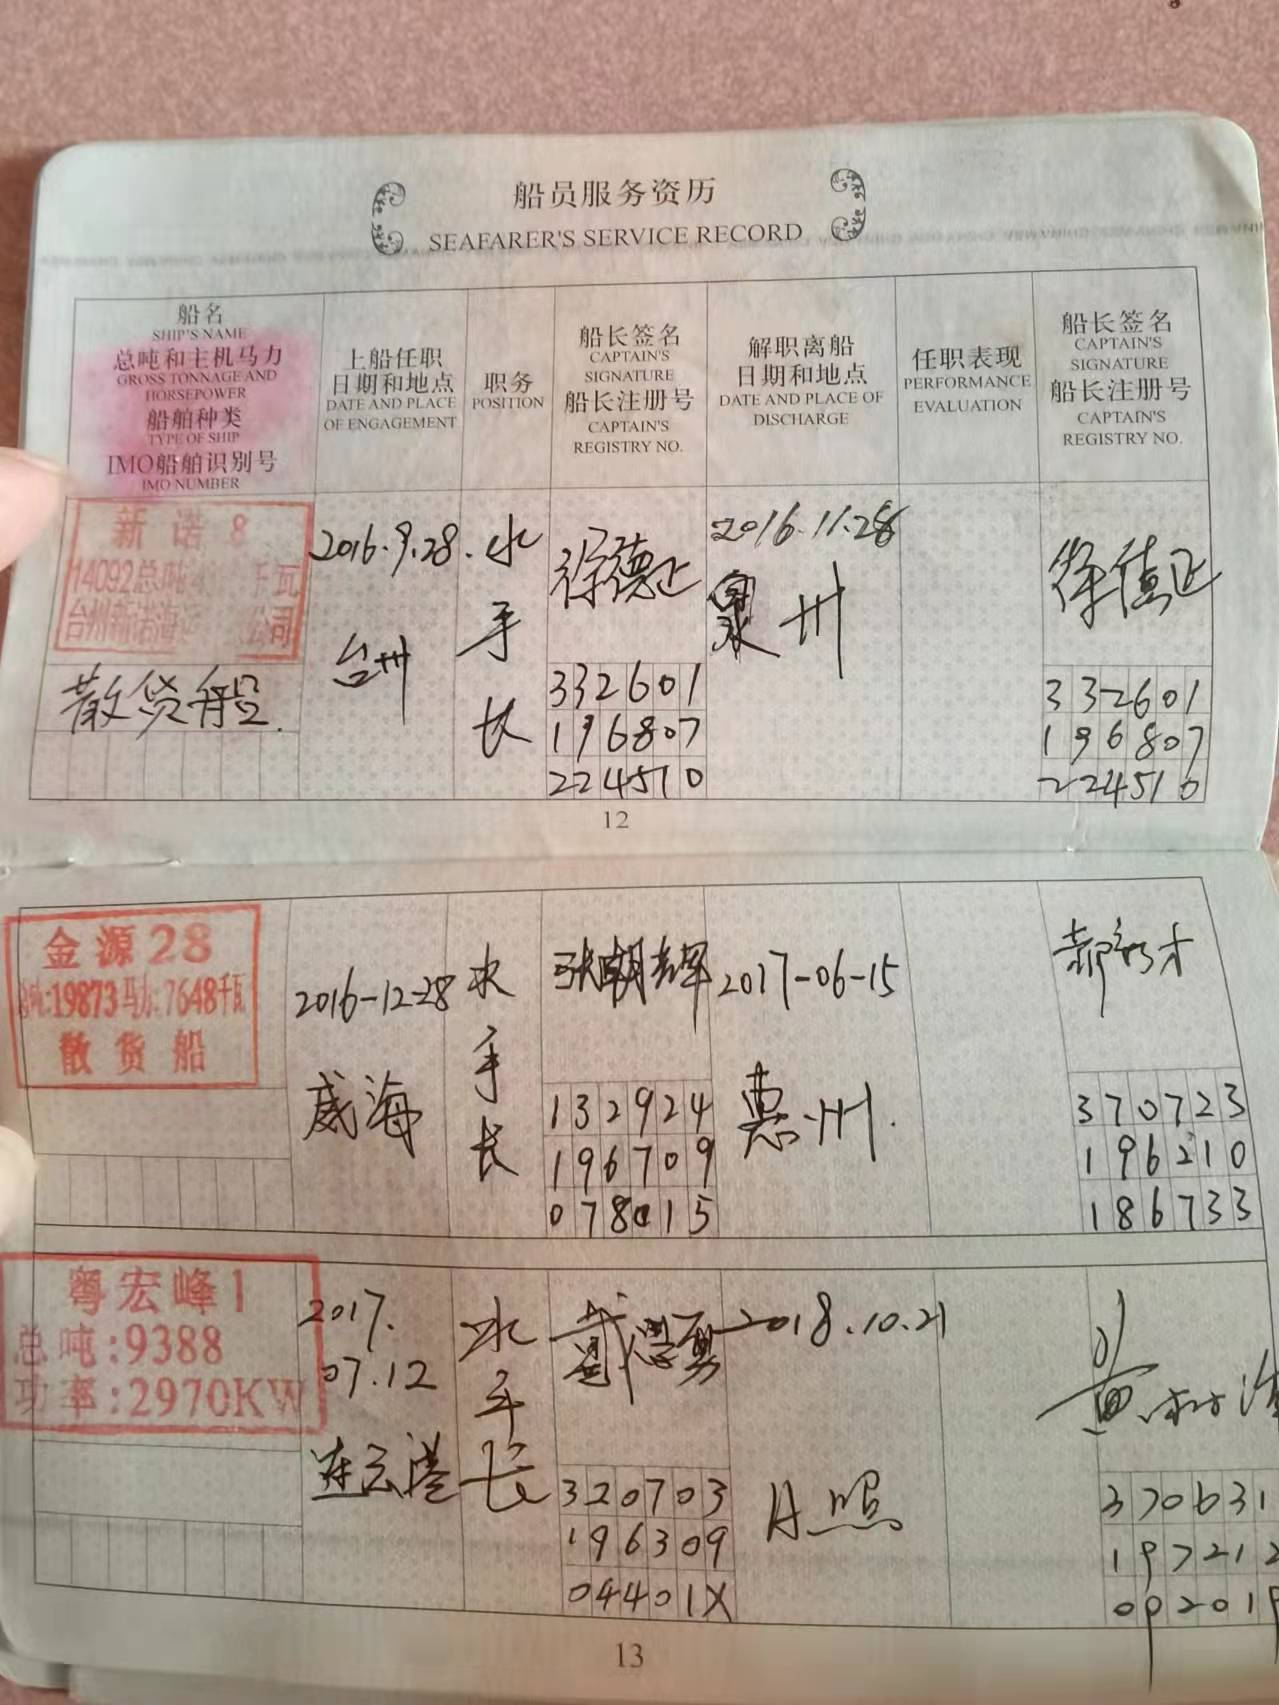 船员服务资历
SEAFARER'S SERVICE RECORD
船名
SHIP'S NAME
总吨和主机马力
GROSS TONNAGE AND
HORSEPOWER
船舶种类
TYPE OF SHIP
IMO船舶识别号
IMO NUMBER
上船任职
日期和地点
DATE AND PLACE
OF ENGAGEMENT
职务
POSITION
船长签名
CAPTAIN'S
SIGNATURE
船长注册号
CAPTAIN'S
REGISTRY NO.
解职离船
日期和地点
DATE AND PLACE OF
DISCHARGE
任职表现
PERFORMANCE
EVALUATION
船长签名
CAPTAIN'S
SIGNATURE
船长注册号
CAPTAIN'S
REGISTRY NO.
新诺8
14092总吨 千瓦
台州新诺海运 公司
散货船
2016.9.28.
台州
水
手
长
徐德正
332601
196807
224510
2016.11.28
泉州
徐德正
332601
196807
224510
12
金源28
总吨:19873马力:7648千瓦
散货船
2016-12-28
威海
水
手
长
张朝辉
132924
196709
078015
2017-06-15
惠州.
370723
196210
186733
粤宏峰1
总吨:9388
功率:2970KW
2017.
07.12
连云港
水
手
长
320703
196309
04401X
2018.10.21
日照
370631
197212
13